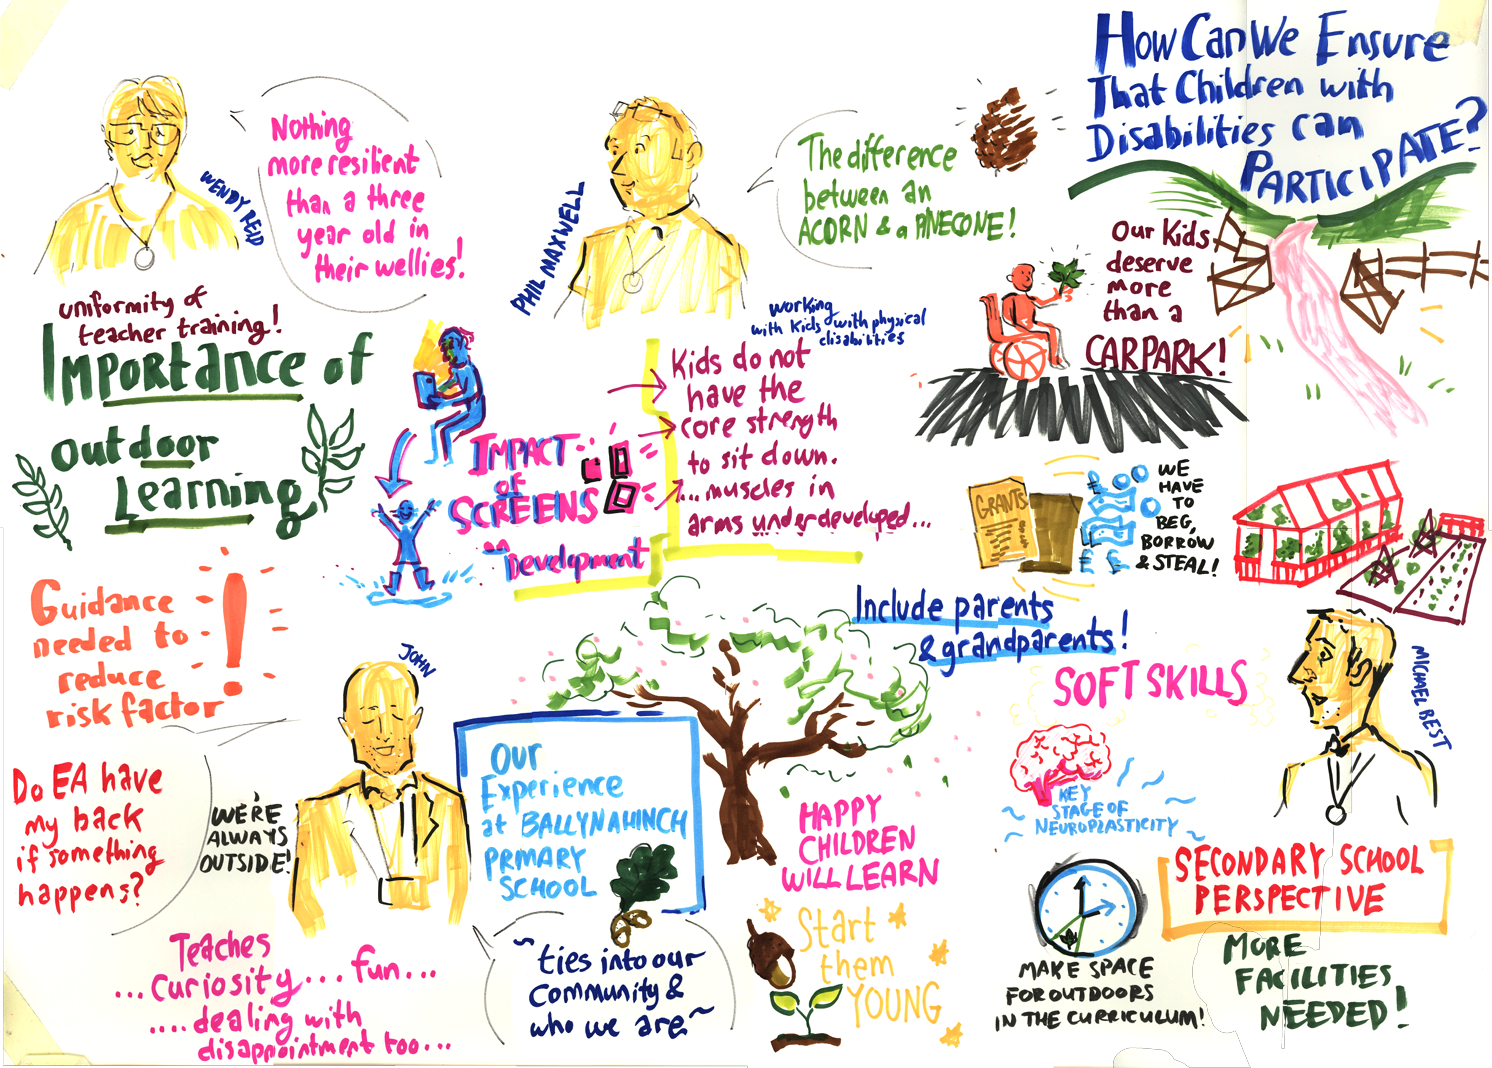 How Can We Ensure
That Children with
Disabilities can
PARTICIPATE?
Nothing
more resilient
than a three
year old in
their wellies!
WENDY REID
PHIL MAXWELL
The difference
between an
ACORN & a PINECONE!
Our Kids
deserve
more
than a
CARPARK!
uniformity of
teacher training!
IMPORTANCE of
Outdoor
Learning
working
with kids with physical
disabilities
Kids do not
have the
core strength
to sit down.
...muscles in
arms underdeveloped...
IMPACT
of
SCREENS
on
Development
GRANTS
WE
HAVE
TO
BEG,
BORROW
& STEAL!
Guidance
needed to
reduce
risk factor
!
Include parents
& grandparents!
SOFT SKILLS
MICHAEL BEST
JOHN
Do EA have
my back
if something
happens?
WE'RE
ALWAYS
OUTSIDE!
Our
Experience
at BALLYNAHINCH
PRIMARY
SCHOOL
HAPPY
CHILDREN
WILL LEARN
KEY
STAGE OF
NEUROPLASTICITY
SECONDARY SCHOOL
PERSPECTIVE
Teaches
...curiosity... fun...
....dealing with
disappointment too...
~ties into our
community &
who we are~
Start
them
YOUNG
MAKE SPACE
FOR OUTDOORS
IN THE CURRICULUM!
MORE
FACILITIES
NEEDED!